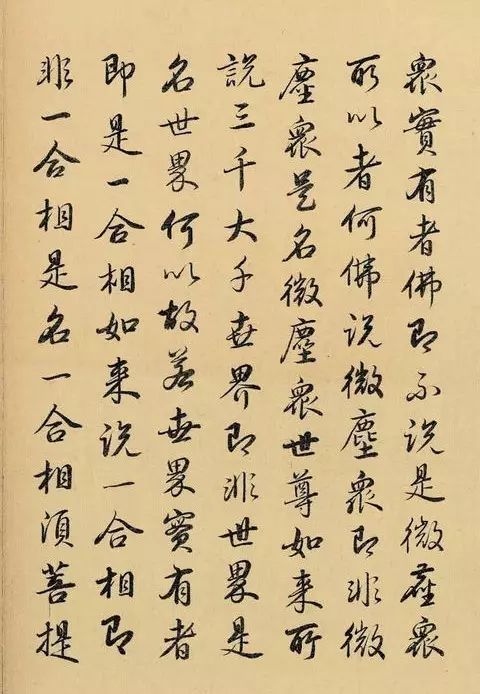 衆實有者佛即不説是微塵衆
所以者何佛説微塵衆即非微
塵衆是名微塵衆世尊如来所
説三千大千世界即非世界是
名世界何以故若世界實有者
即是一合相如来説一合相即
非一合相是名一合相須菩提